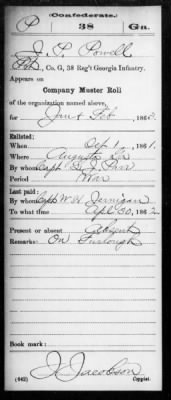 (Confederate.)
P 38 Ga.
J. P. Powell
Pvt., Co. G, 38 Reg't Georgia Infantry.
Appears on
Company Muster Roll
of the organization named above,
for Jan & Feb, 1863.
Enlisted:
When Sept 1, 1861.
Where Augusta Ga
By whom Capt
Period War
Last paid:
By whom Capt W. H. Jernigan
To what time Apl 30, 1862
Present or absent Absent
Remarks: On Furlough
Book mark:
J. Jacobson
(642) Copyist.